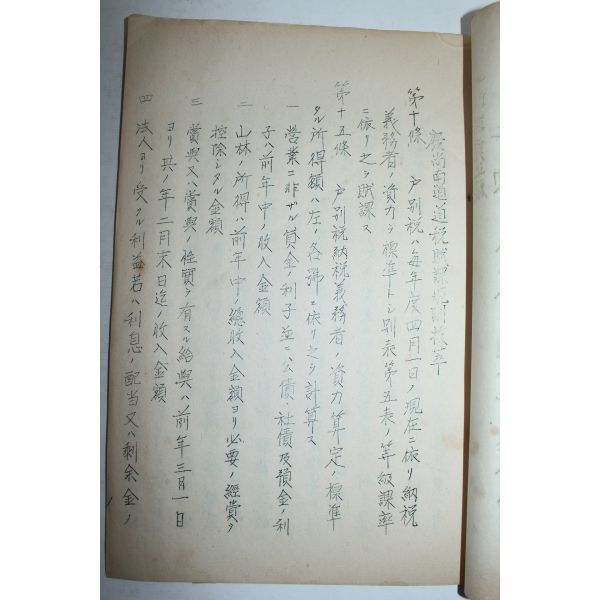 慶尚南道道税賦課規則抜萃
第十條　戸別税ハ毎年度四月一日ノ現在ニ依リ納税
義務者ノ資力ヲ標準トシ別表第五表ノ等級課率
ニ依リ之ヲ賦課ス
第十五條　戸別税納税義務者ノ資力算定ノ標準
タル所得額ハ左ノ各号ニ依リ之ヲ計算ス
一　営業ニ非ザル貸金ノ利子並ニ公債、社債及預金ノ利
子ハ前年中ノ收入金額
二　山林ノ所得ハ前年中ノ總收入金額ヨリ必要ノ經費ヲ
控除シタル金額
三　賞與又ハ賞與ノ性質ヲ有スル給與ハ前年三月一日
ヨリ其ノ年二月末日迄ノ收入金額
四　法人ヨリ受クル利益若ハ利息ノ配当又ハ剰余金ノ